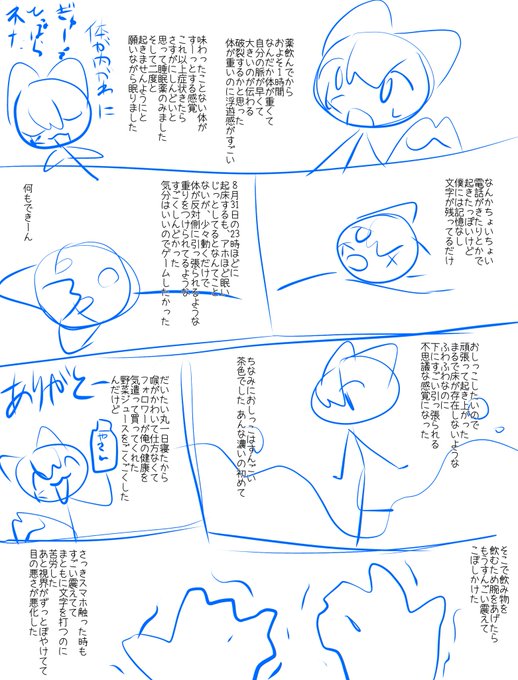 薬飲んでから
およそ1時間
なんだか体が重くて
自分の脈が早くて
大きいのが伝わる
破裂するかと思った
体が重いのに浮遊感がすごい
味わったことない体が
すーっとする感覚
これ以上症状きたら
さすがにしんどいと
思って睡眠薬のみました
そして二度と
起きませんようにと
願いながら眠りました
体が内がわに
ぎゅーって
ひっぱら
れた
なんかちょいちょい
電話がきたりとかで
起きたっぽいけど
僕には記憶なし
文字が残ってるだけ
8月31日の23時ほどに
起床するも、アホほど眠い
じっとしてるとなんてこと
ないが、少々動くだけで
体が反対側に引っ張られるような
重りをつけられてるような
すごくしんどかった
気分はいいのでゲームしたかった
何もできーん
おしっこしたいので
頑張って起き上がった
まるで床が存在しないような
ふわふわなのに
下にすごい引っ張られる
不思議な感覚になった
ちなみにおしっこはすんごい
茶色でした。あんな濃いの初めて
だいたい丸一日寝てたから
喉がかわいて仕方なくて
フォロワーが俺の健康を
気遣って買ってくれた
野菜ジュースをごくごくした
んだけど
ありがとー
やさい
そこで飲み物を
飲むため腕をあげたら
もうすんごい震えて
こぼしかけた
さっきスマホ触った時も
すごい震えてて
まともに文字を打つのに
苦労した
あと視界がずっとぼやけてて
目の悪さが悪化した